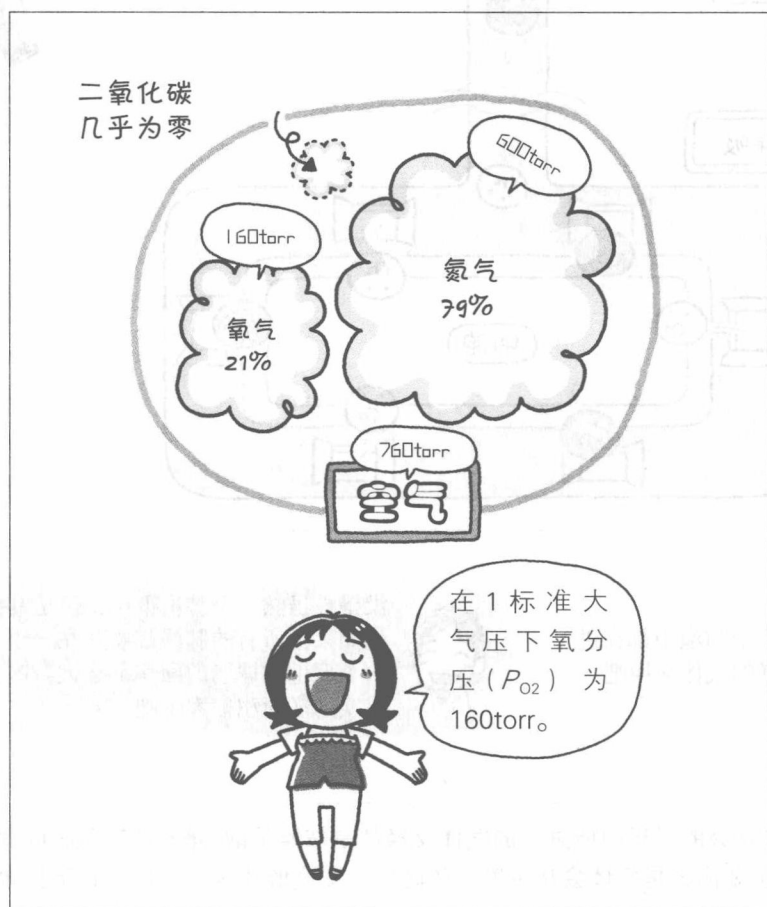 二氧化碳
几乎为零
600torr
160torr
氮气
79%
氧气
21%
760torr
空气
在1标准大
气压下氧分
压(PO2)为
160torr。